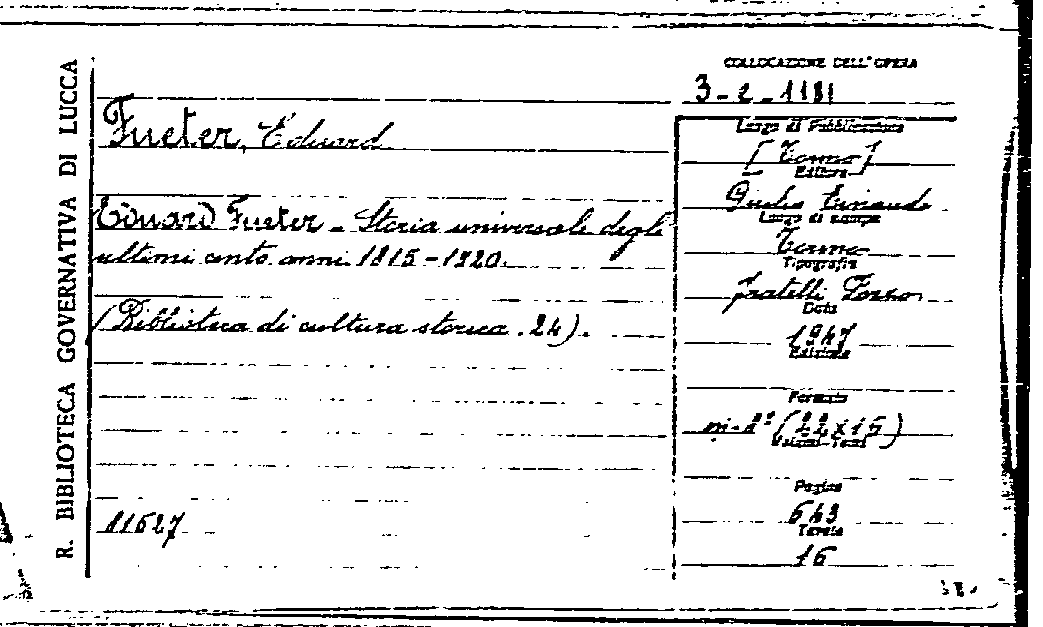 R. BIBLIOTECA GOVERNATIVA DI LUCCA
COLLOCAZIONE DELL'OPERA
3-2-1181
Fueter, Eduard
Eduard Fueter - Storia universale degli
ultimi cento anni 1815-1920.
(Biblioteca di cultura storica. 24).
11627
Luogo di Pubblicazione
[Torino]
Editore
Giulio Einaudi
Luogo di stampa
Torino
Tipografia
Fratelli Pozzo
Data
1947
Edizione
Formato
in-8° (22x15)
Volumi-Tomi
Pagine
543
Tavole
16